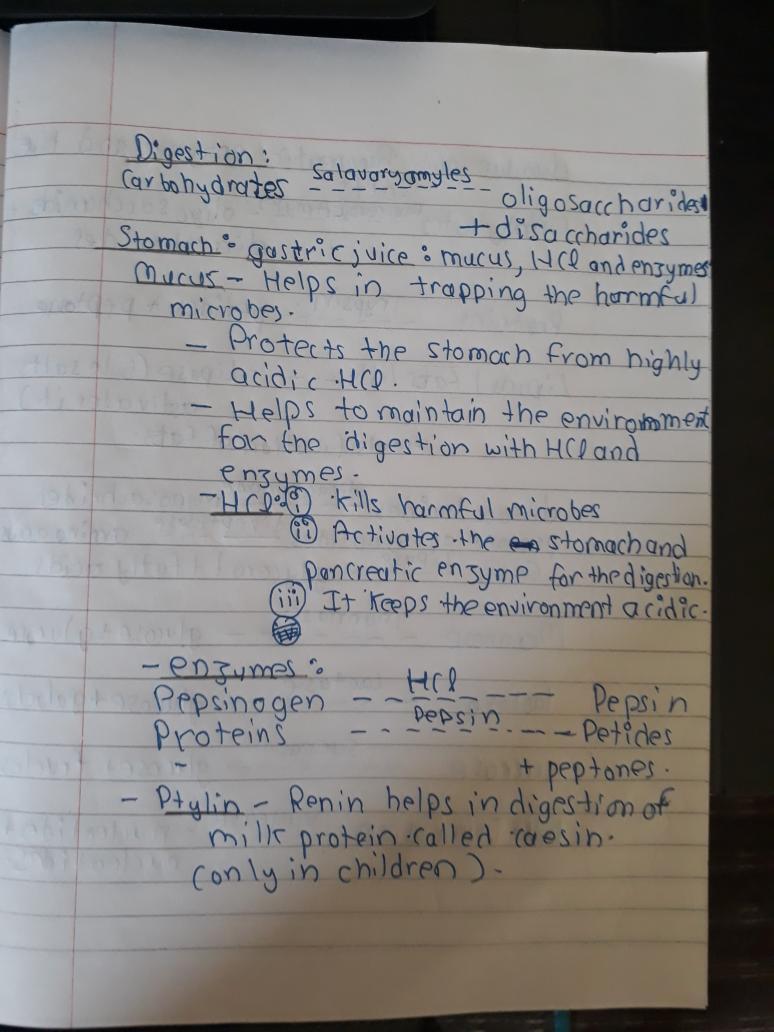 Digestion:
Carbohydrates Salavaryamyles oligosaccharides
+ disaccharides
Stomach: gastric juice: mucus, HCl and enzymes
Mucus - Helps in trapping the harmful
microbes.
- Protects the stomach from highly
acidic HCl.
- Helps to maintain the environment
for the digestion with HCl and
enzymes.
- HCl: (i) kills harmful microbes
(ii) Activates the stomach and
pancreatic enzyme for the digestion.
(iii) It keeps the environment acidic.
- enzymes:
Pepsinogen --HCl------ Pepsin
Proteins ---Pepsin---- Petides
+ peptones.
- Ptylin - Renin helps in digestion of
milk protein called caesin.
(only in children).